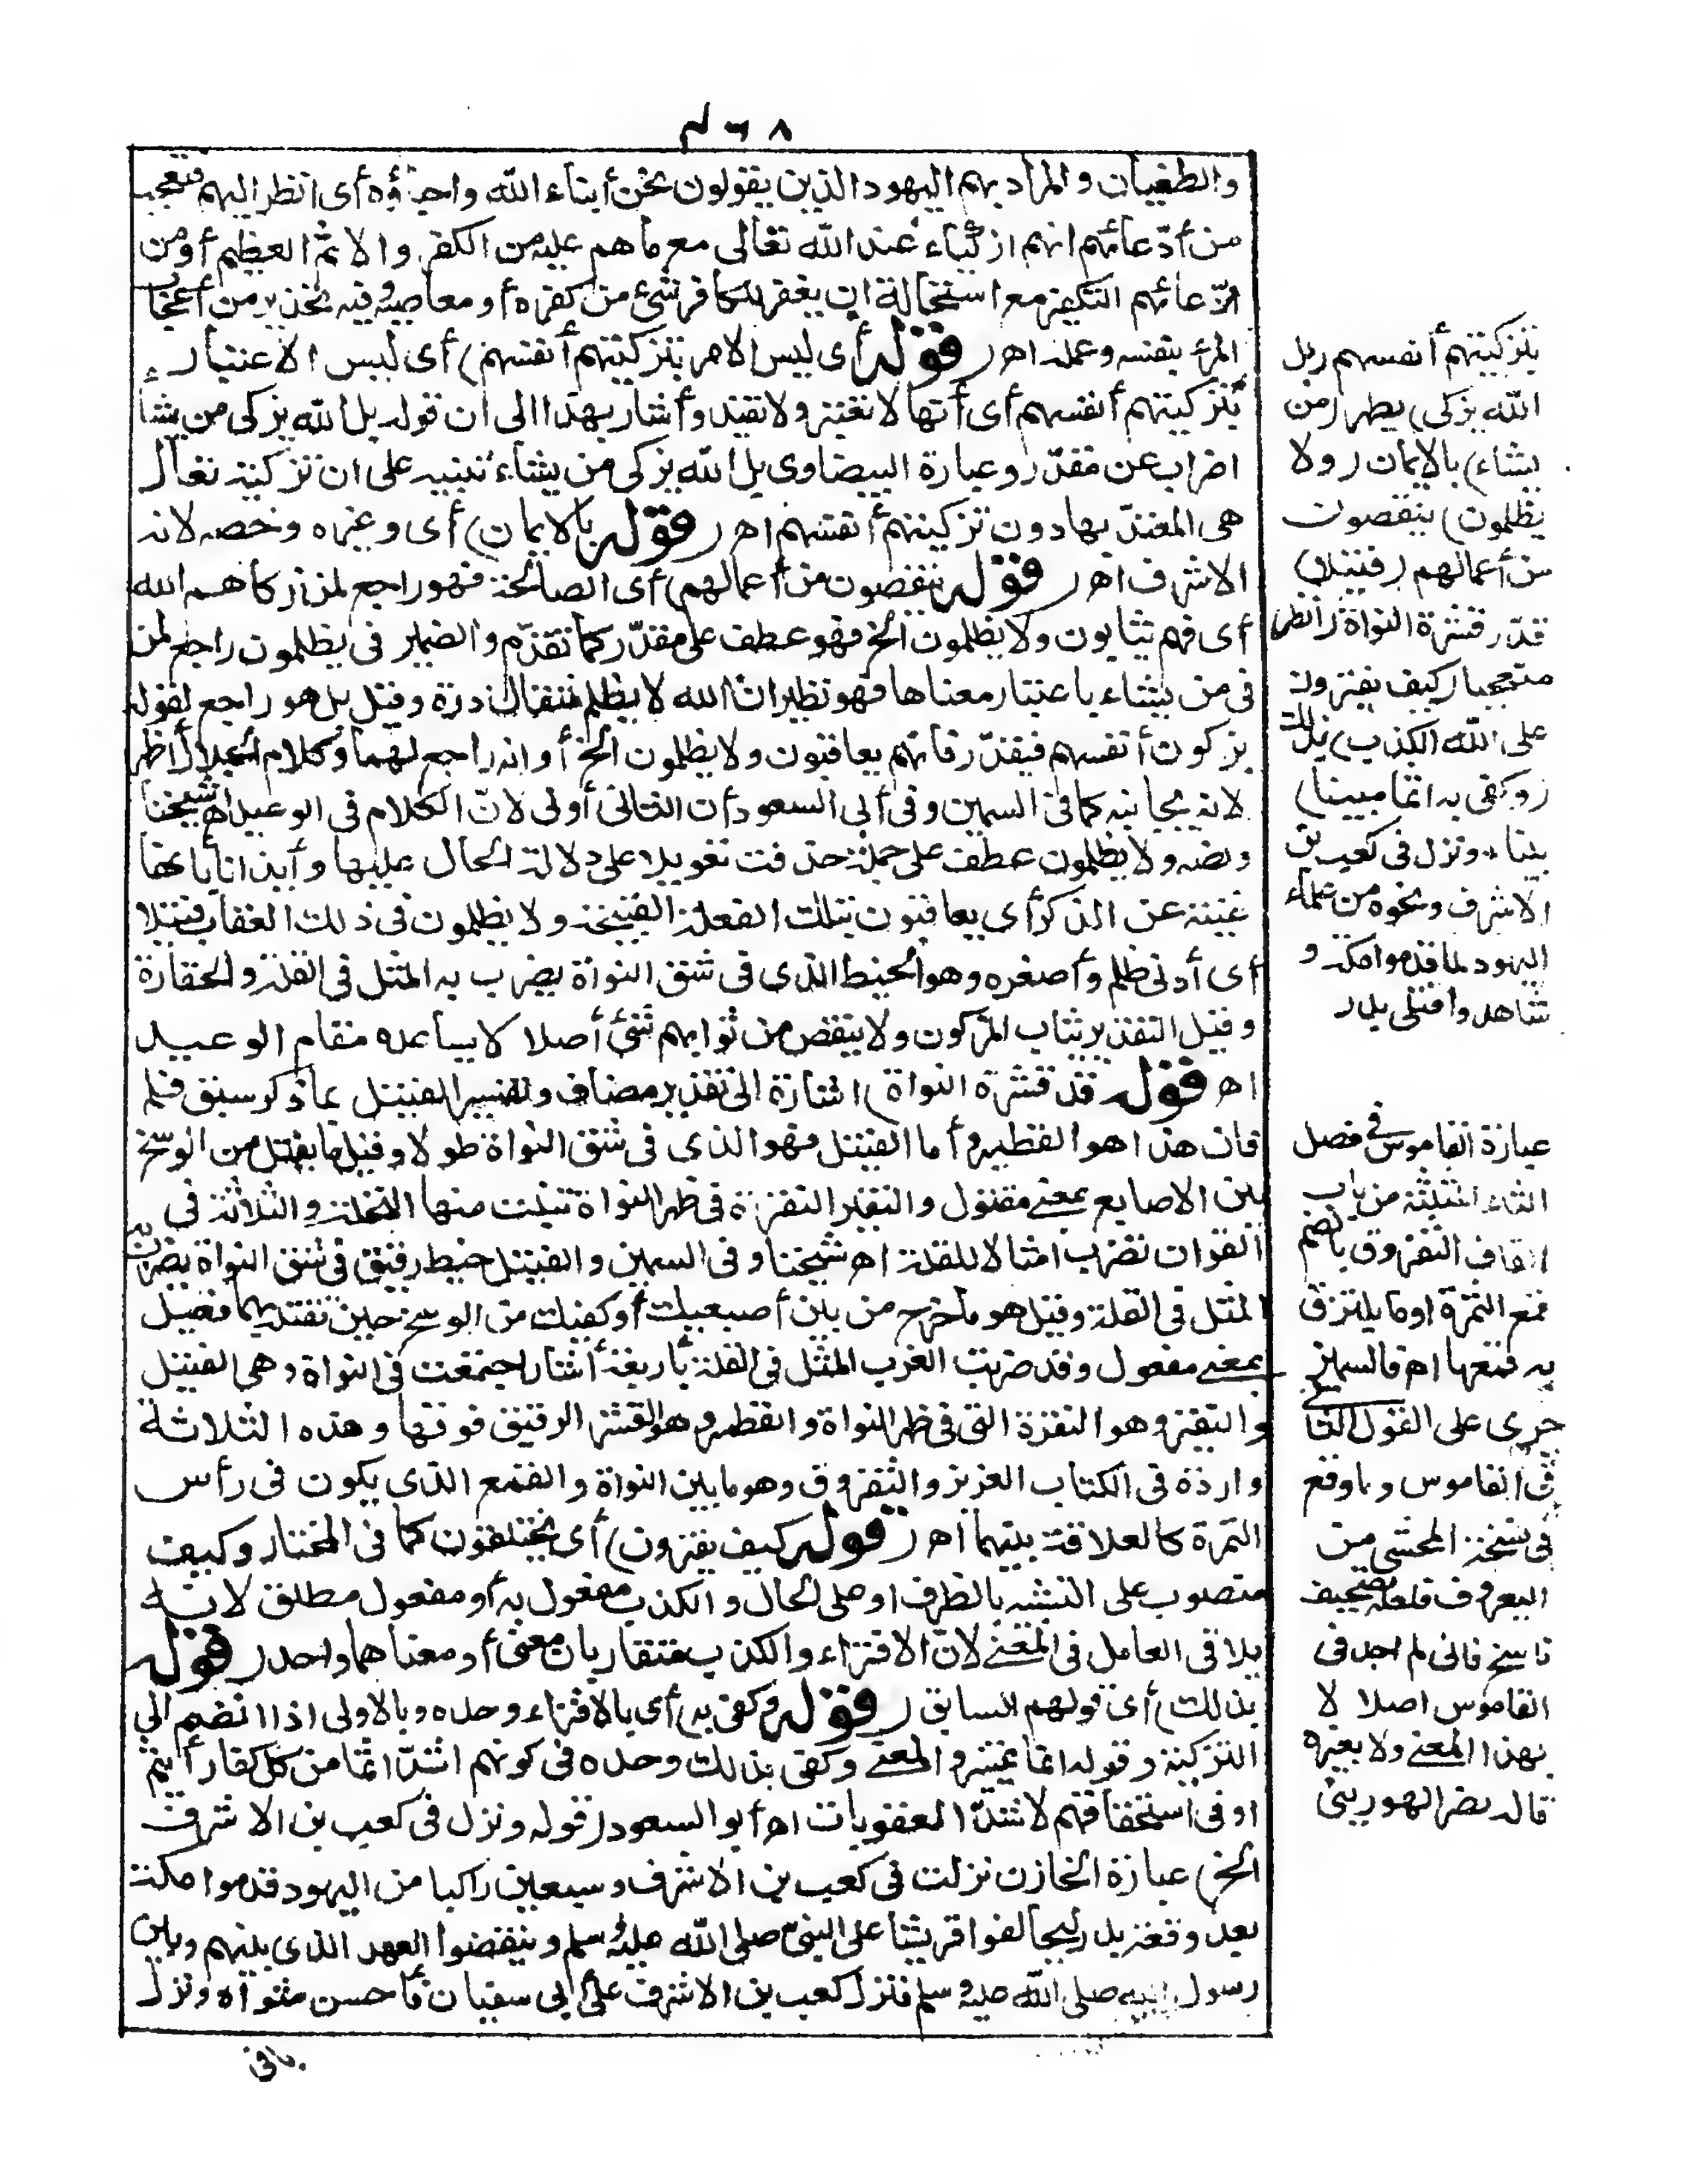 ٤٦٨
والطغيان والمراد بهم اليهود الذين يقولون نحن أبناء الله واحباؤه أى انظر اليهم فتعجب
من أدّعائهم انهم ازكياء عند الله تعالى مع ما هم عليه من الكفر والاثم العظيم أومن
ادّعائهم التكفير مع استحالة ان يغفر للكافر شئ من كفره أو معاصيه وفيه تحذير من أعجاب
المرء بنفسه وعمله اهـ (قوله أى ليس الامر بتزكيتهم أنفسهم) أى ليس الاعتبار
بتزكيتهم أنفسهم أى أنها لا تعتبر ولا تفيد وأشار بهذا الى ان قوله بل الله يزكى من يشاء
اضراب عن مقدّر وعبارة البيضاوى بل الله يزكى من يشاء تنبيه على ان تزكيته تعالى
هى المعتدّ بها دون تزكيتهم أنفسهم اهـ (قوله بالايمان) أى وغيره وخصه لانه
الاشرف اهـ (قوله ينقصون من أعمالهم) أى الصالحة فهو راجع لمن زكاهم الله
أى فهم يثابون ولا يظلمون الخ فهو عطف على مقدّر كما تقدّم والضمير فى يظلمون راجع لمن
فى من يشاء باعتبار معناها فهو نظير ان الله لا يظلم مثقال ذرة وقيل بل هو راجع لقوله
يزكون أنفسهم فيقدّر فانهم يعاقبون ولا يظلمون الخ أو انه راجع لهما وكلام الجلال أظهر
لانه بجانبه كما فى السمين وفى أبى السعود أن الثانى أولى لانّ الكلام فى الوعيد اهـ شيخنا
ونصه ولا يظلمون عطف على جملة حذفت تعويلا على دلالة الحال عليها وأيذانا بانها
غنية عن الذكر أى يعاقبون بتلك الفعلة القبيحة ولا يظلمون فى ذلك العقاب فتيلا
أى أدنى ظلم وأصغره وهو الخيط الذى فى شق النواة يضرب به المثل فى القلة والحقارة
وقيل التقدير يثاب المزكون ولا ينقص من ثوابهم شئ أصلا لا يساعده مقام الوعيد
اهـ (قوله قدر قشرة النواة) اشارة الى تقدير مضاف وتفسير الفتيل بما ذكر سبق قلم
فان هذا هو القطمير وأما الفتيل فهو الذى فى شق النواة طولا وقيل ما يفتل من الوسخ
بين الاصابع بمعنى مفتول والنقير النقرة فى ظهر النواة تنبت منها النخلة والثلاثة فى
القرآن تضرب امثالا للقلة اهـ شيخنا وفى السمين والفتيل خيط رقيق فى شق النواة يضرب به
المثل فى القلة وقيل هو ما خرج من بين أصبعيك أو كفيك من الوسخ حين تفتلهما فعيل
بمعنى مفعول وقد ضربت العرب المثل فى القلة بأربعة أشيا اجتمعت فى النواة وهى الفتيل
والنقير وهو النقرة التى فى ظهر النواة والقطمير وهو القشر الرقيق فوقها وهذه الثلاثة
واردة فى الكتاب العزيز والثفروق وهو ما بين النواة والقمع الذى يكون فى رأس
التمرة كالعلاقة بينهما اهـ (قوله كيف يفترون) أى يختلقون كما فى المختار وكيف
منصوب على التشبه بالظرف او على الحال والكذب مفعول به أو مفعول مطلق لانه
يلاقى العامل فى المعنى لانّ الافتراء والكذب متقاربان معنى أو معناهما واحد (قوله
بذلك) أى قولهم السابق (قوله وكفى به) أى بالافتراء وحده وبالاولى اذا انضم الى
التزكية وقوله اثما تمييز والمعنى وكفى بذلك وحده فى كونهم اشدّ اثما من كل كفار أثيم
او فى استحقاقهم لاشدّ العقوبات اهـ أبو السعود (قوله ونزل فى كعب بن الاشرف
الخ) عبارة الخازن نزلت فى كعب بن الاشرف وسبعين راكبا من اليهود قدموا مكة
بعد وقعة بدر ليحالفوا قريشا على النبى صلى الله عليه وسلم وينقضوا العهد الذى بينهم وبين
رسول الله صلى الله عليه وسلم فنزل كعب بن الاشرف على أبى سفيان فأحسن مثواه ونزل
باقى
بتزكيتهم أنفسهم (بل
الله يزكى) يطهر (من
يشاء) بالايمان (ولا
يظلمون) ينقصون
من أعمالهم (فتيلا)
قدر قشرة النواة (انظر)
متعجبا (كيف يفترون
على الله الكذب) بذلك
(وكفى به اثما مبينا)
بينا ونزل فى كعب بن
الاشرف ونحوه من علماء
اليهود لما قدموا مكة و
شاهدوا قتلى بدر
عبارة القاموس فى فصل
الثاء المثلثة من باب
القاف الثفروق بالضم
قمع التمرة او ما يلتزق
به قمعها اهـ فالسمين
جرى على القول الثانى
فى القاموس وما وقع
فى نسخة المحشى من
البعروف فلعله تصحيف
ناسخ فانى لم اجد فى
القاموس اصلا لا
بهذا المعنى ولا بغيره
قاله نصر الهورينى